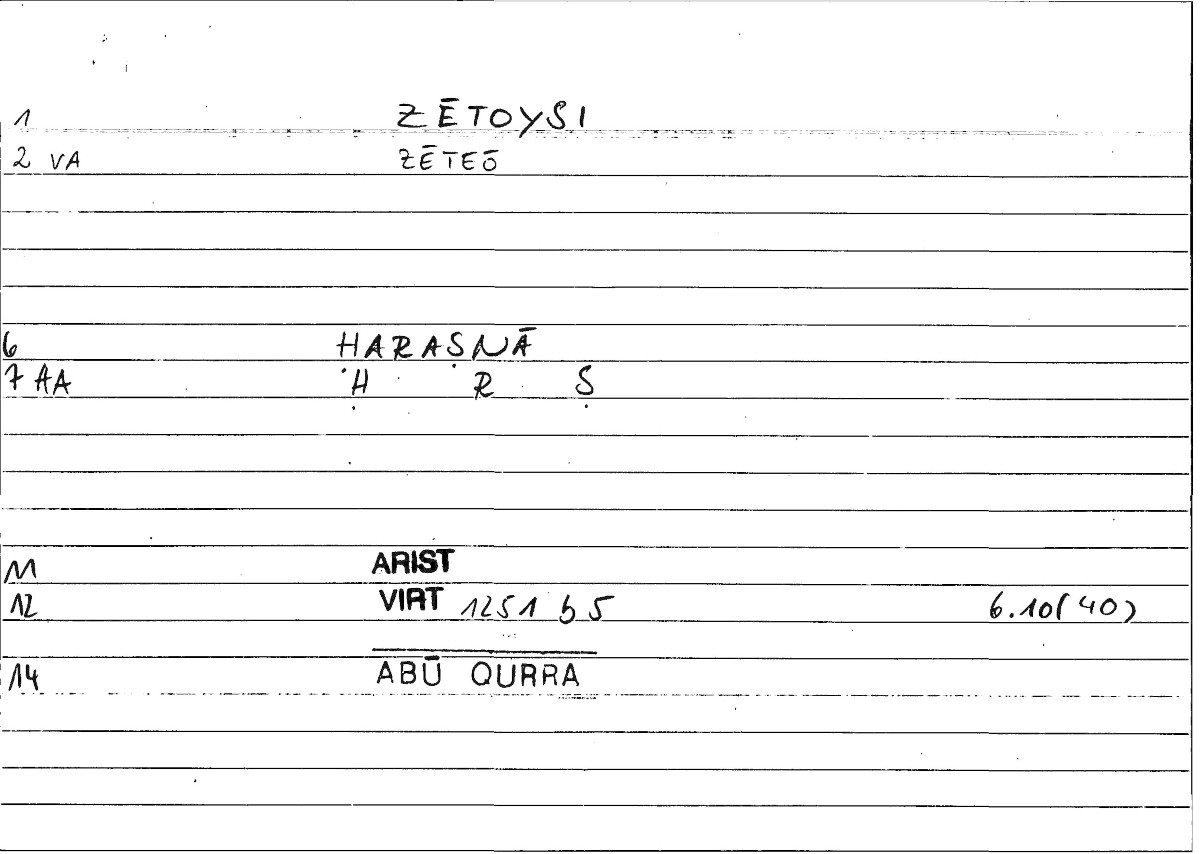 1 ZĒTOYSI
2 VA ZĒTEŌ
6 ḤARAṢNĀ
7 AA Ḥ R Ṣ
11 ARIST
12 VIRT 1251 b 5 6.10(40)
14 ABŪ QURRA